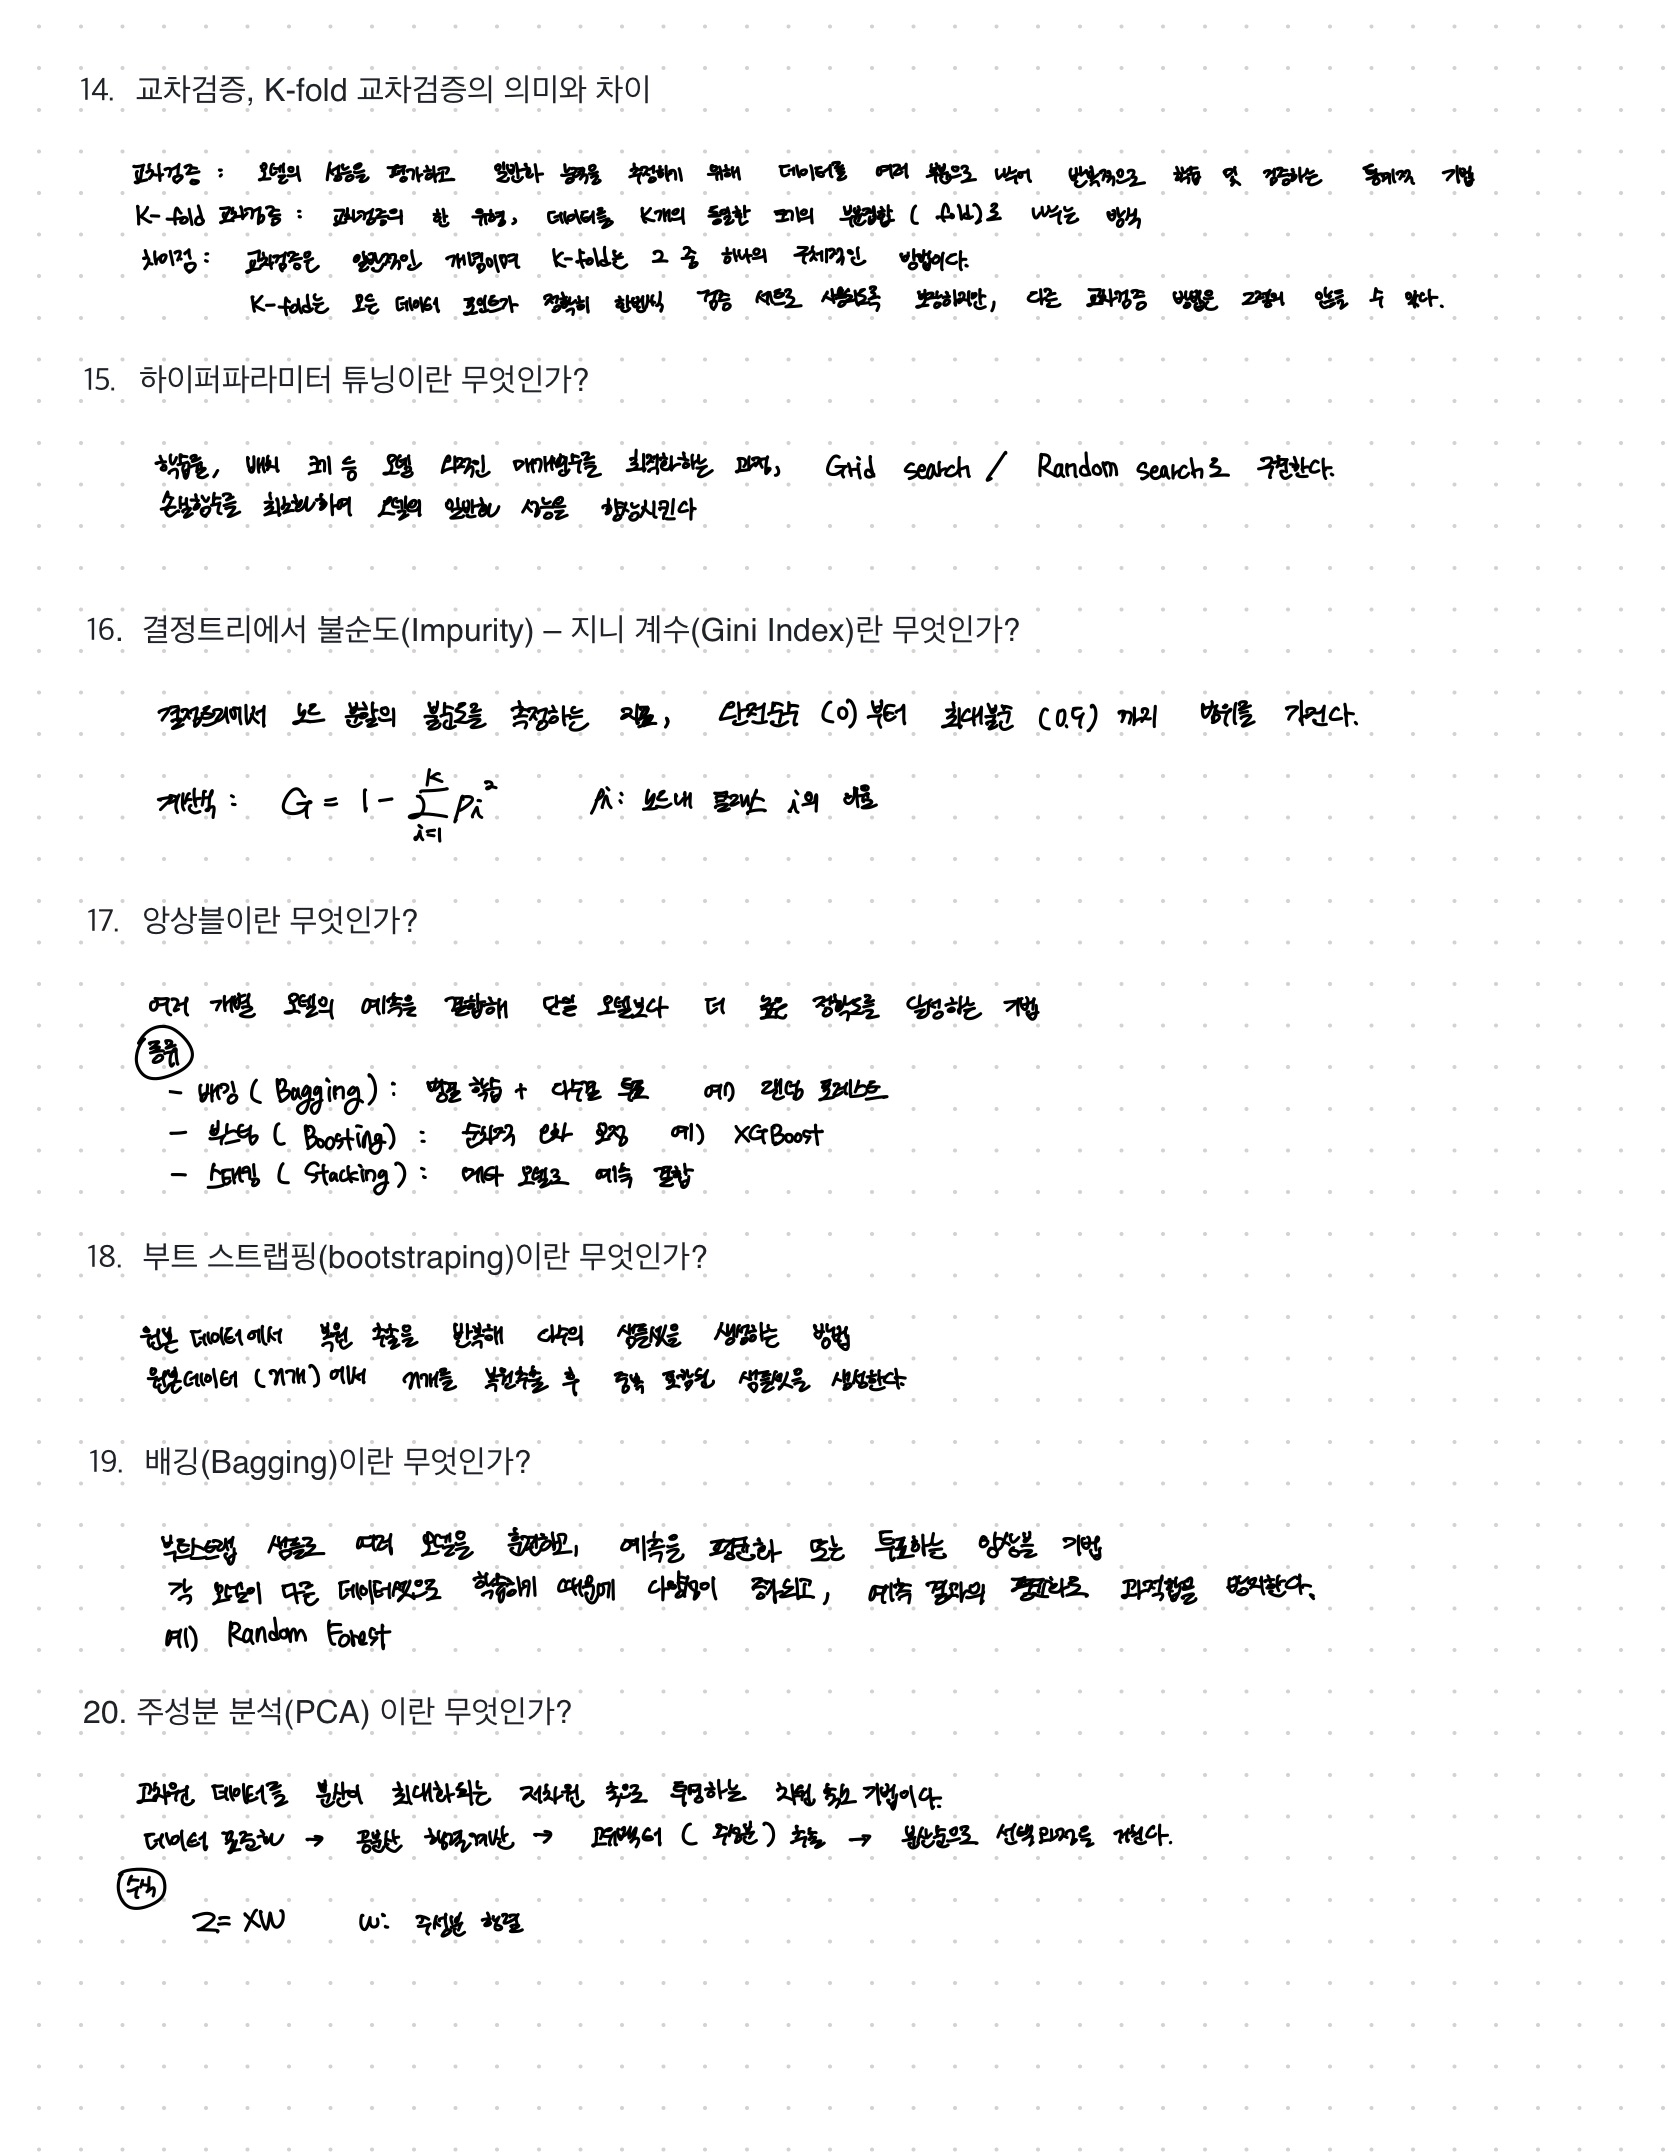 14. 교차검증, K-fold 교차검증의 의미와 차이
교차검증 : 모델의 성능을 평가하고 일반화 능력을 추정하기 위해 데이터를 여러 부분으로 나누어 반복적으로 학습 및 검증하는 통계적 기법
K-fold 교차검증 : 교차검증의 한 유형, 데이터를 K개의 동일한 크기의 부분집합 ( fold )로 나누는 방식
차이점 : 교차검증은 일반적인 개념이며 K-fold는 그 중 하나의 구체적인 방법이다.
K-fold는 모든 데이터 포인트가 정확히 한번씩 검증 세트로 사용되도록 보장하지만, 다른 교차검증 방법은 그렇지 않을 수 있다.
15. 하이퍼파라미터 튜닝이란 무엇인가?
학습률, 배치 크기 등 모델 외적인 매개변수를 최적화하는 과정, Grid search / Random search로 구분한다.
손실함수를 최소화하여 모델의 일반화 성능을 향상시킨다
16. 결정트리에서 불순도(Impurity) – 지니 계수(Gini Index)란 무엇인가?
결정트리에서 노드 분할의 불순도를 측정하는 지표, 완전순수 (0) 부터 최대불순 (0.5) 까지 범위를 가진다.
계산식 : G = 1 - \sum_{i=1}^{K} pi² Pi : 노드내 클래스 i의 비율
17. 앙상블이란 무엇인가?
여러 개별 모델의 예측을 결합해 단일 모델보다 더 높은 정확도를 달성하는 기법
종류
- 배깅 ( Bagging ) : 병렬 학습 + 다수결 투표 예) 랜덤 포레스트
- 부스팅 ( Boosting ) : 순차적 오차 보정 예) XGBoost
- 스태킹 ( Stacking ) : 메타 모델로 예측 결합
18. 부트 스트랩핑(bootstraping)이란 무엇인가?
원본 데이터에서 복원 추출을 반복해 다수의 샘플셋을 생성하는 방법
원본데이터 (n개) 에서 n개를 복원추출 후 중복 포함된 샘플셋을 생성한다.
19. 배깅(Bagging)이란 무엇인가?
부트스트랩 샘플로 여러 모델을 훈련하고, 예측을 평균화 또는 투표하는 앙상블 기법
각 모델이 다른 데이터셋으로 학습하기 때문에 다양성이 증가되고, 예측 결과의 평균화로 과적합을 방지한다.
예) Random Forest
20. 주성분 분석(PCA) 이란 무엇인가?
고차원 데이터를 분산이 최대화되는 저차원 축으로 투영하는 차원 축소 기법이다.
데이터 표준화 → 공분산 행렬계산 → 고유벡터 ( 주성분 ) 추출 → 분산순으로 선택 과정을 거친다.
수식
Z = XW W: 주성분 행렬